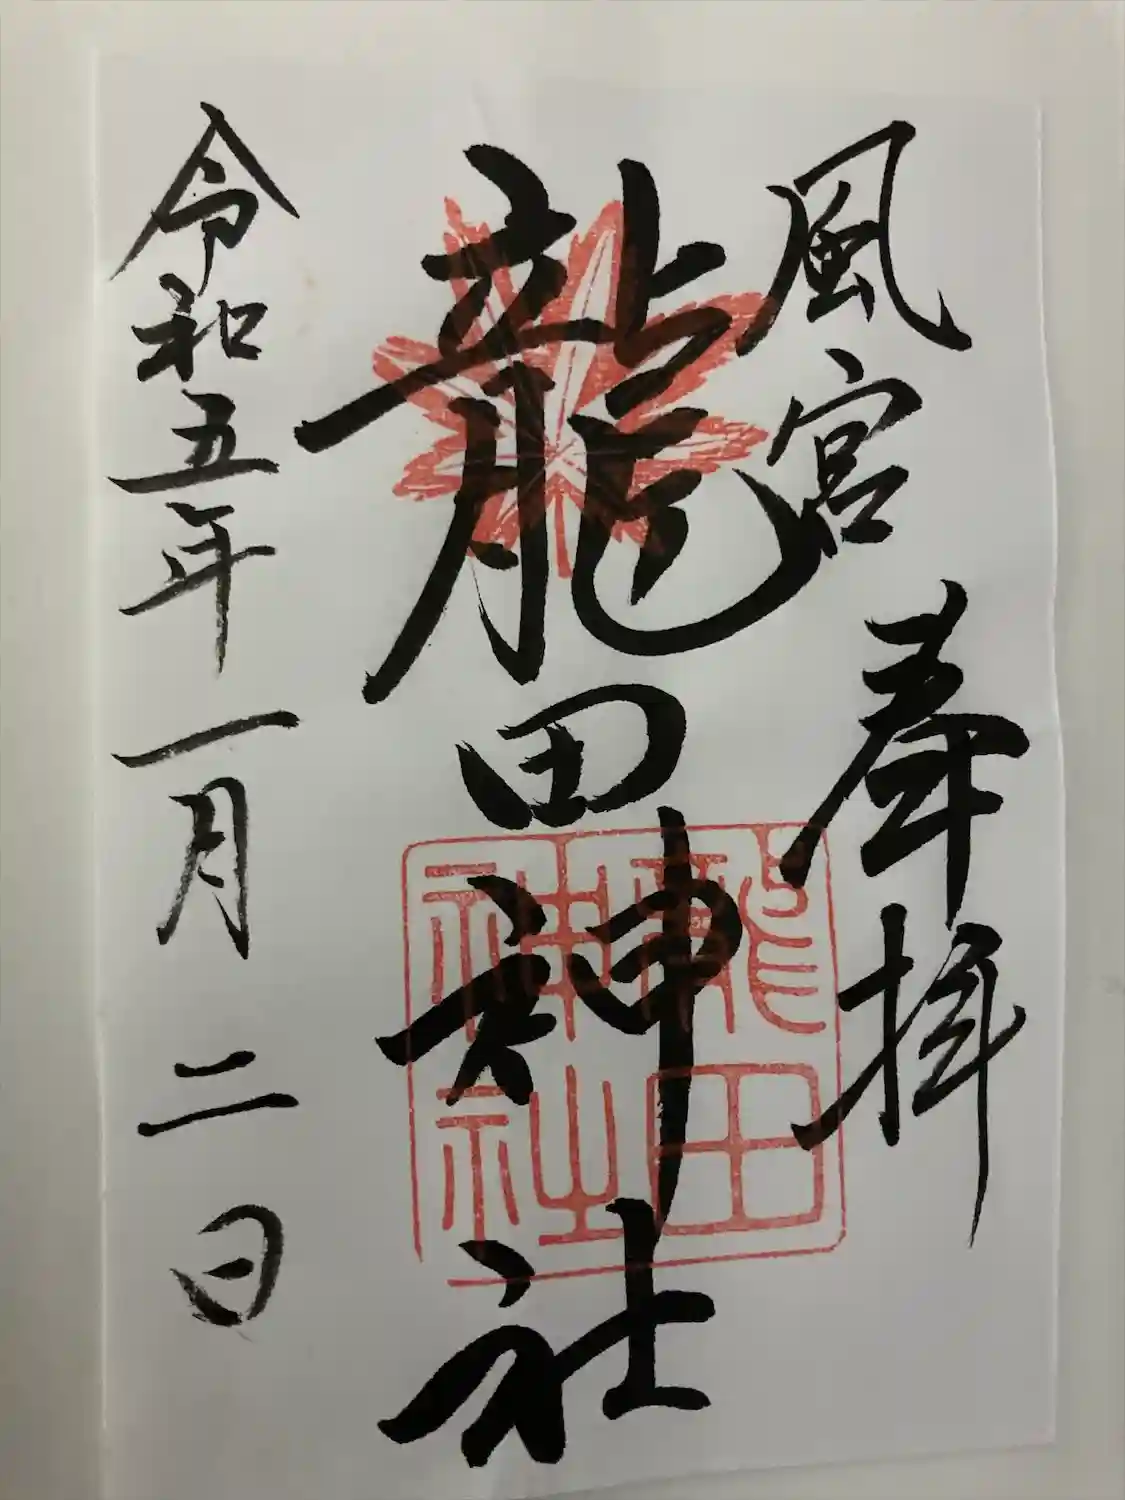 風宮
奉拝
龍田神社
龍田
神社
令和五年一月二日